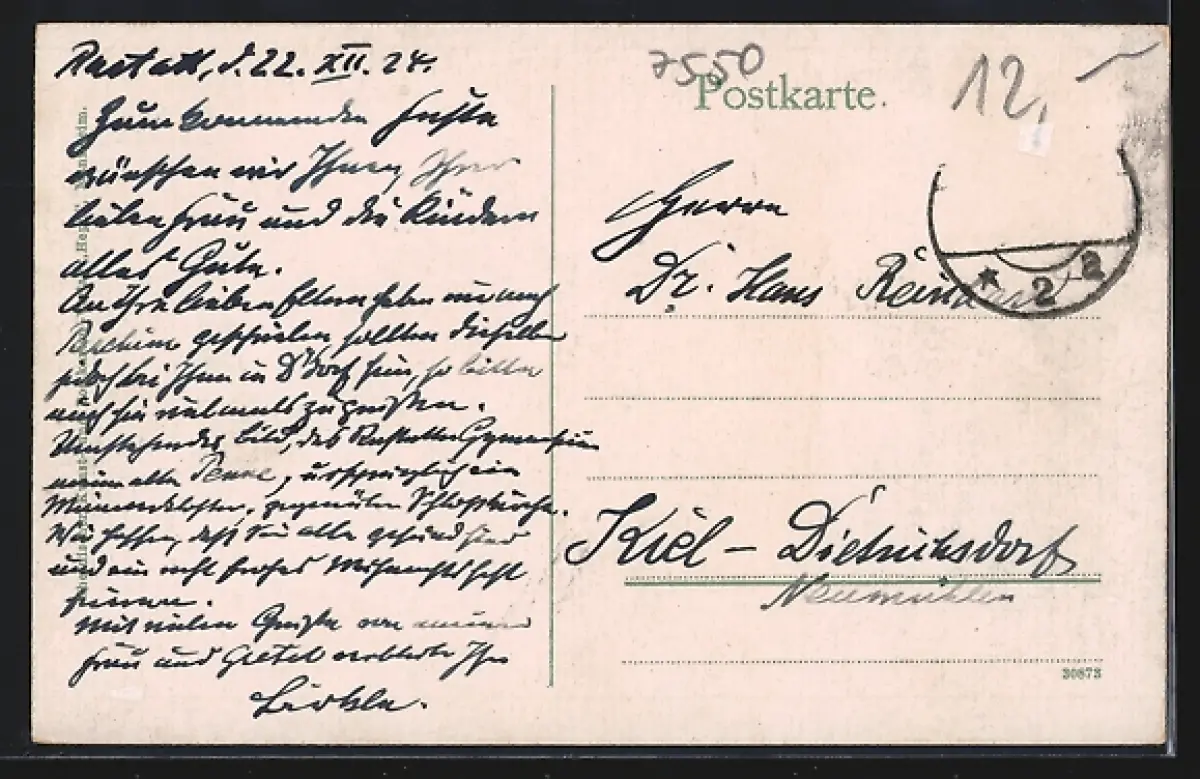 Rastatt, d. 22. XII. 24.
Zum kommenden Feste
wünschen wir Ihnen, Ihrer
lieben Frau und die Kindern
alles Gute.
An Ihre lieben Eltern haben wir auch
geschrieben sollten dieselben
jedoch bei Ihnen in D'dorf sein, so bitte
auch sie vielmals zu grüßen.
Umstehendes Bild, das Rastatter Gymnasium
meine alte Penne, ursprünglich ein
gegenüber Schloßkirche.
Wir hoffen, daß Sie alle gesund sind
und ein recht frohes Weihnachtsfest
feiern.
Mit vielen Grüßen von meiner
Frau und Gretel verbleibe Ihr
Birkle.
7550
Postkarte.
12,-
Herrn
Dr. Hans
Kiel - Dietrichsdorf
Neumühlen
* 2 2
30873